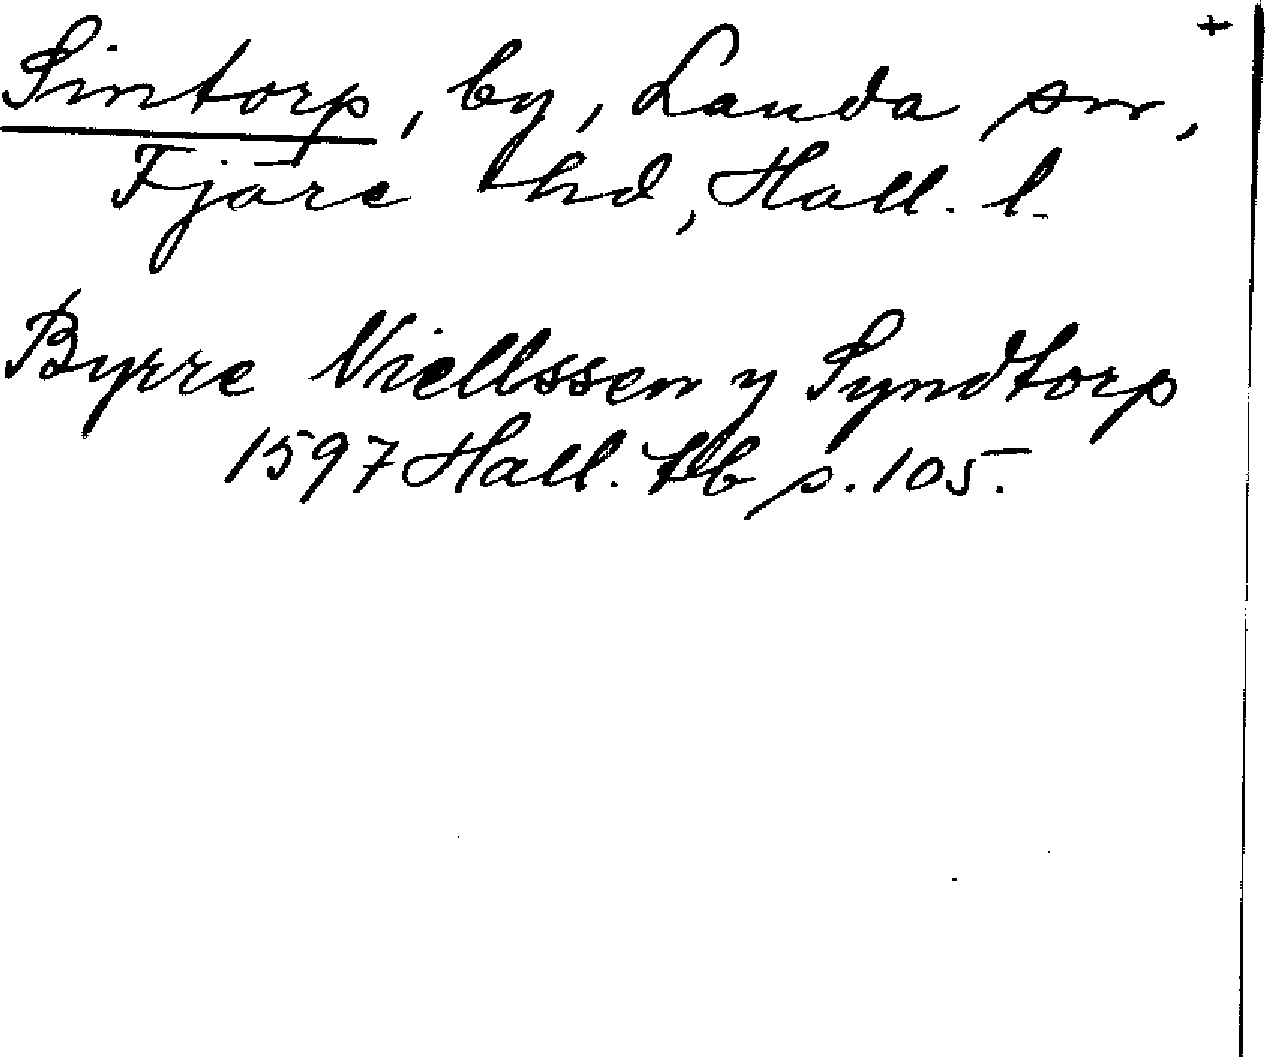 +
Sintorp, by, Landa sn,
Fjäre hd, Hall. l.
Byrre Niellssen y Syndtorp
1597 Hall. lb p. 105.